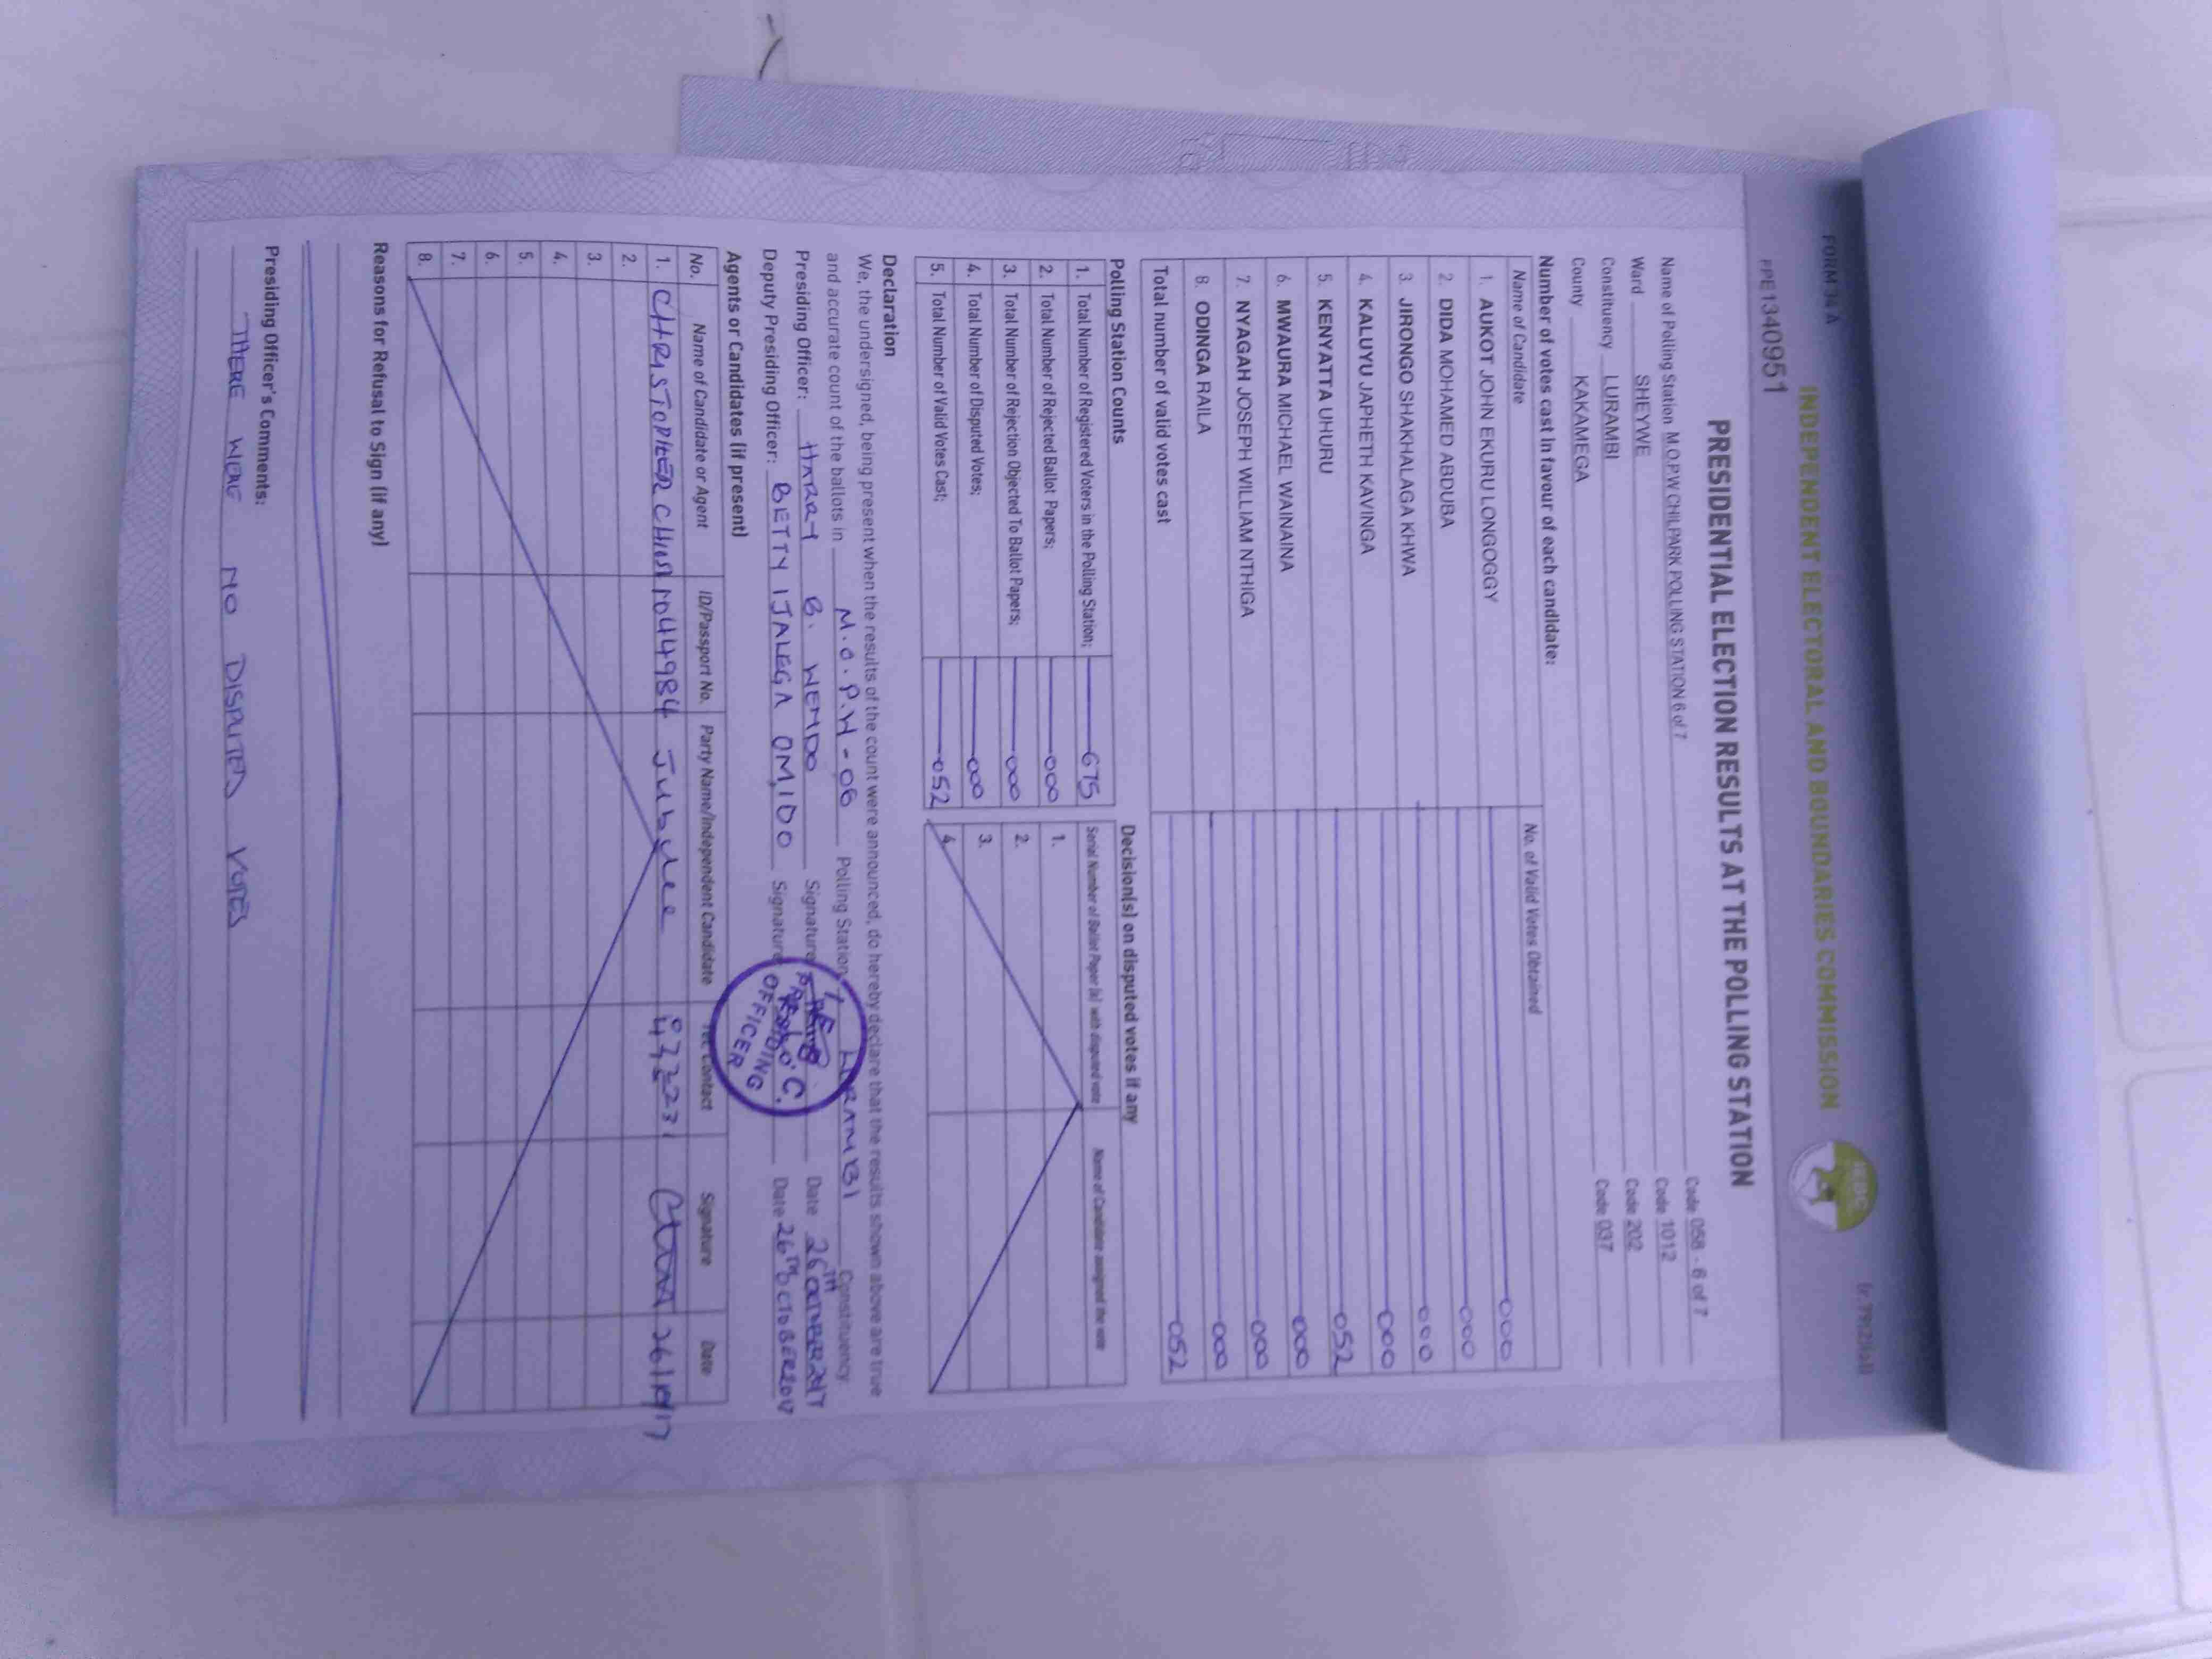 FORM 34 A
INDEPENDENT ELECTORAL AND BOUNDARIES COMMISSION
PPE1340951
PRESIDENTIAL ELECTION RESULTS AT THE POLLING STATION
Name of Polling Station M.O.P.W CHILPARK POLLING STATION 6 of 7 Code 058 - 6 of 7
Ward SHEYWE Code 1012
Constituency LURAMBI Code 202
County KAKAMEGA Code 037
Number of votes cast in favour of each candidate:
Name of Candidate No. of Valid Votes Obtained
1. AUKOT JOHN EKURU LONGOGGY 000
2. DIDA MOHAMED ABDUBA 000
3. JIRONGO SHAKHALAGA KHWA 000
4. KALUYU JAPHETH KAVINGA 000
5. KENYATTA UHURU 052
6. MWAURA MICHAEL WAINAINA 000
7. NYAGAH JOSEPH WILLIAM NTHIGA 000
8. ODINGA RAILA 000
Total number of valid votes cast 052
Polling Station Counts
1. Total Number of Registered Voters in the Polling Station; 675
2. Total Number of Rejected Ballot Papers; 000
3. Total Number of Rejection Objected To Ballot Papers; 000
4. Total Number of Disputed Votes; 000
5. Total Number of Valid Votes Cast; 052
Decision(s) on disputed votes if any
Serial Number of Ballot Paper (s) with disputed vote Name of Candidate assigned the vote
1.
2.
3.
4.
Declaration
We, the undersigned, being present when the results of the count were announced, do hereby declare that the results shown above are true
and accurate count of the ballots in M.O.P.W - 06 Polling Station, LURAMBI Constituency
Presiding Officer: HARRY B. WEMDO Signature Date 26TH OCTOBER 2017
Deputy Presiding Officer: BETTY IJALEGA OMIDO Signature Date 26TH OCTOBER 2017
PRESIDING OFFICER
Agents or Candidates (if present)
No. Name of Candidate or Agent ID/Passport No. Party Name/Independent Candidate Tel. Contact Signature Date
1. CHRISTOPHER 10449984 Jubilee 26/10/17
2.
3.
4.
5.
6.
7.
8.
Reasons for Refusal to Sign (if any)
Presiding Officer's Comments:
THERE WERE NO DISPUTED VOTES